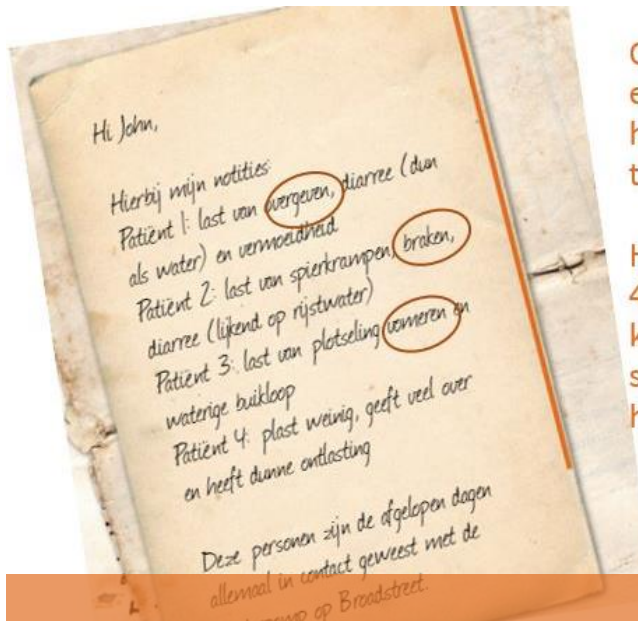 Hi John,
Hierbij mijn notities:
Patiënt 1: last van overgeven, diarree (dun
als water) en vermoeidheid
Patiënt 2: last van spierkrampen, braken,
diarree (lijkend op rijstwater)
Patiënt 3: last van plotseling vomeren en
waterige buikloop
Patiënt 4: plast weinig, geeft veel over
en heeft dunne ontlasting
Deze personen zijn de afgelopen dagen
allemaal in contact geweest met de
op Broadstreet.